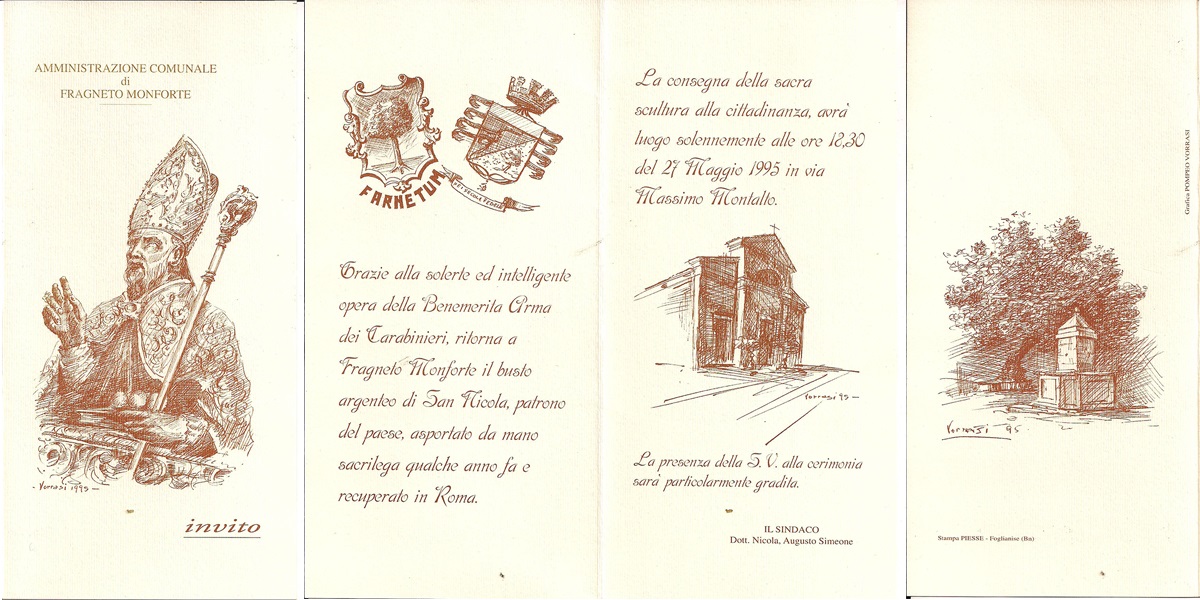 AMMINISTRAZIONE COMUNALE
di
FRAGNETO MONFORTE
- Vorrasi 1995 -
invito
FARNETUM
Grazie alla solerte ed intelligente
opera della Benemerita Arma
dei Carabinieri, ritorna a
Fragneto Monforte il busto
argenteo di San Nicola, patrono
del paese, asportato da mano
sacrilega qualche anno fa e
recuperato in Roma.
La consegna della sacra
scultura alla cittadinanza, avrà
luogo solennemente alle ore 18,30
del 27 Maggio 1995 in via
Massimo Montalto.
Vorrasi 95 -
La presenza della S. V. alla cerimonia
sarà particolarmente gradita.
IL SINDACO
Dott. Nicola, Augusto Simeone
Grafica POMPEO VORRASI
Vorrasi 95
Stampa PIESSE - Foglianise (Bn)